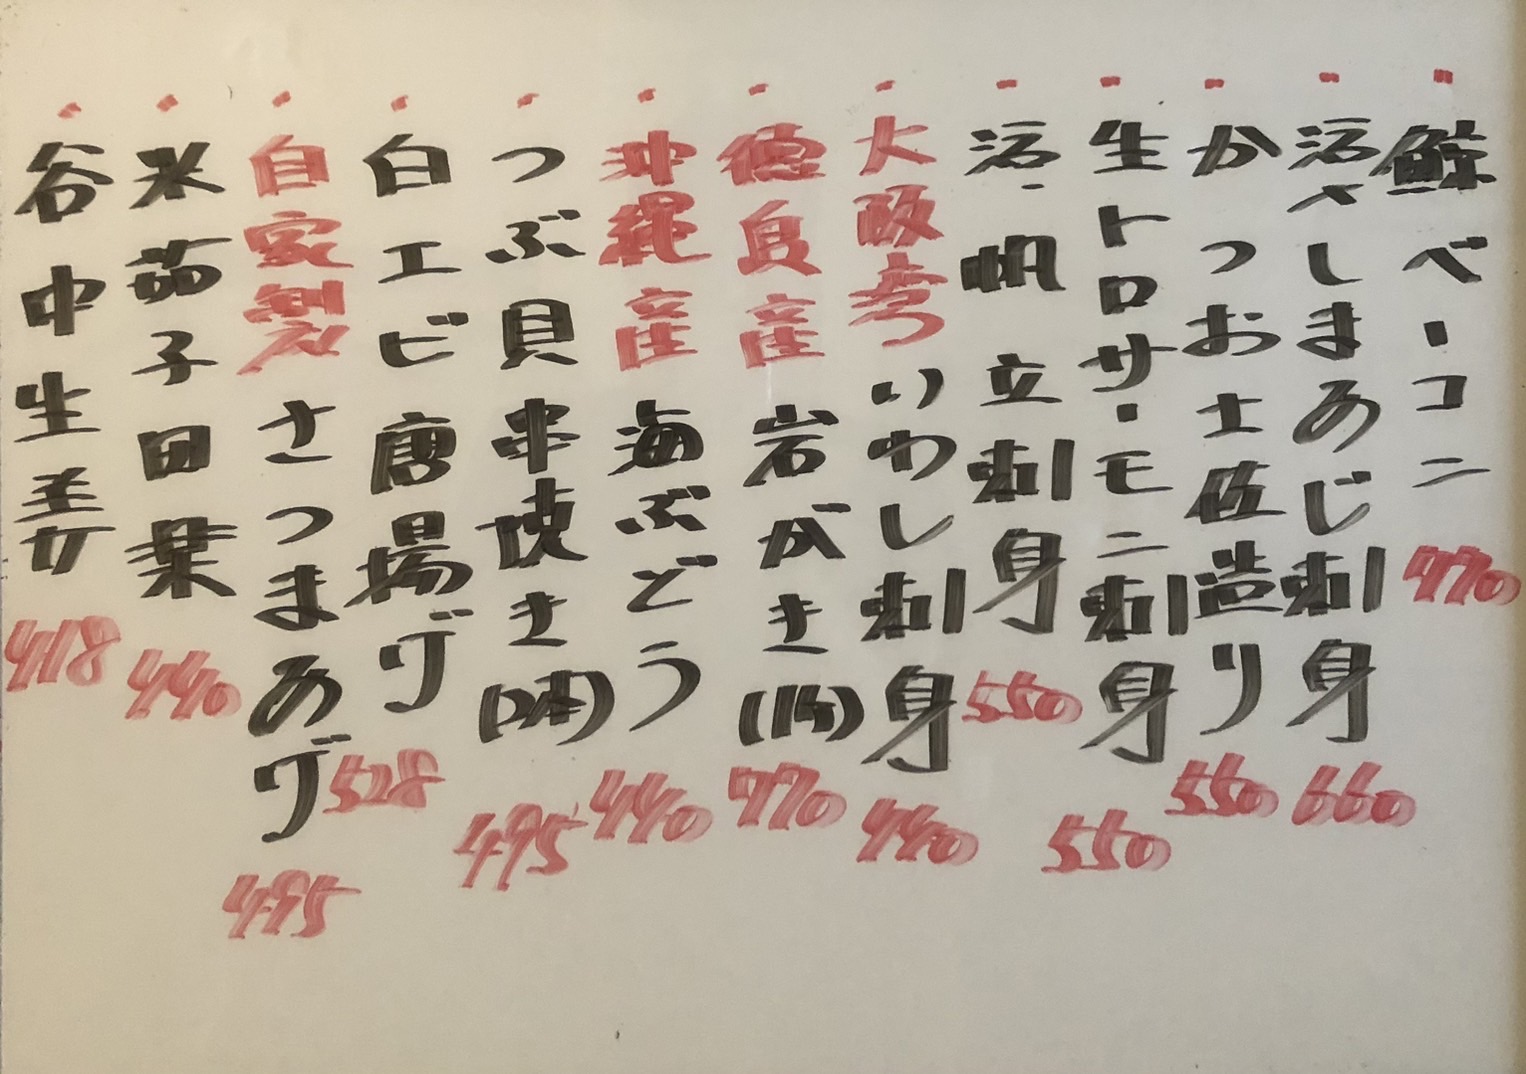 鯨ベーコン 770
活〆しまあじ刺身 660
かつお土佐造り 550
生トロサーモン刺身 550
活・帆立刺身 550
大阪産いわし刺身 440
徳島産岩がき(1ケ) 770
沖縄産海ぶどう 440
つぶ貝串焼き(2本) 495
白エビ唐揚げ 528
自家製さつまあげ 495
米茄子田楽 440
谷中生姜 418